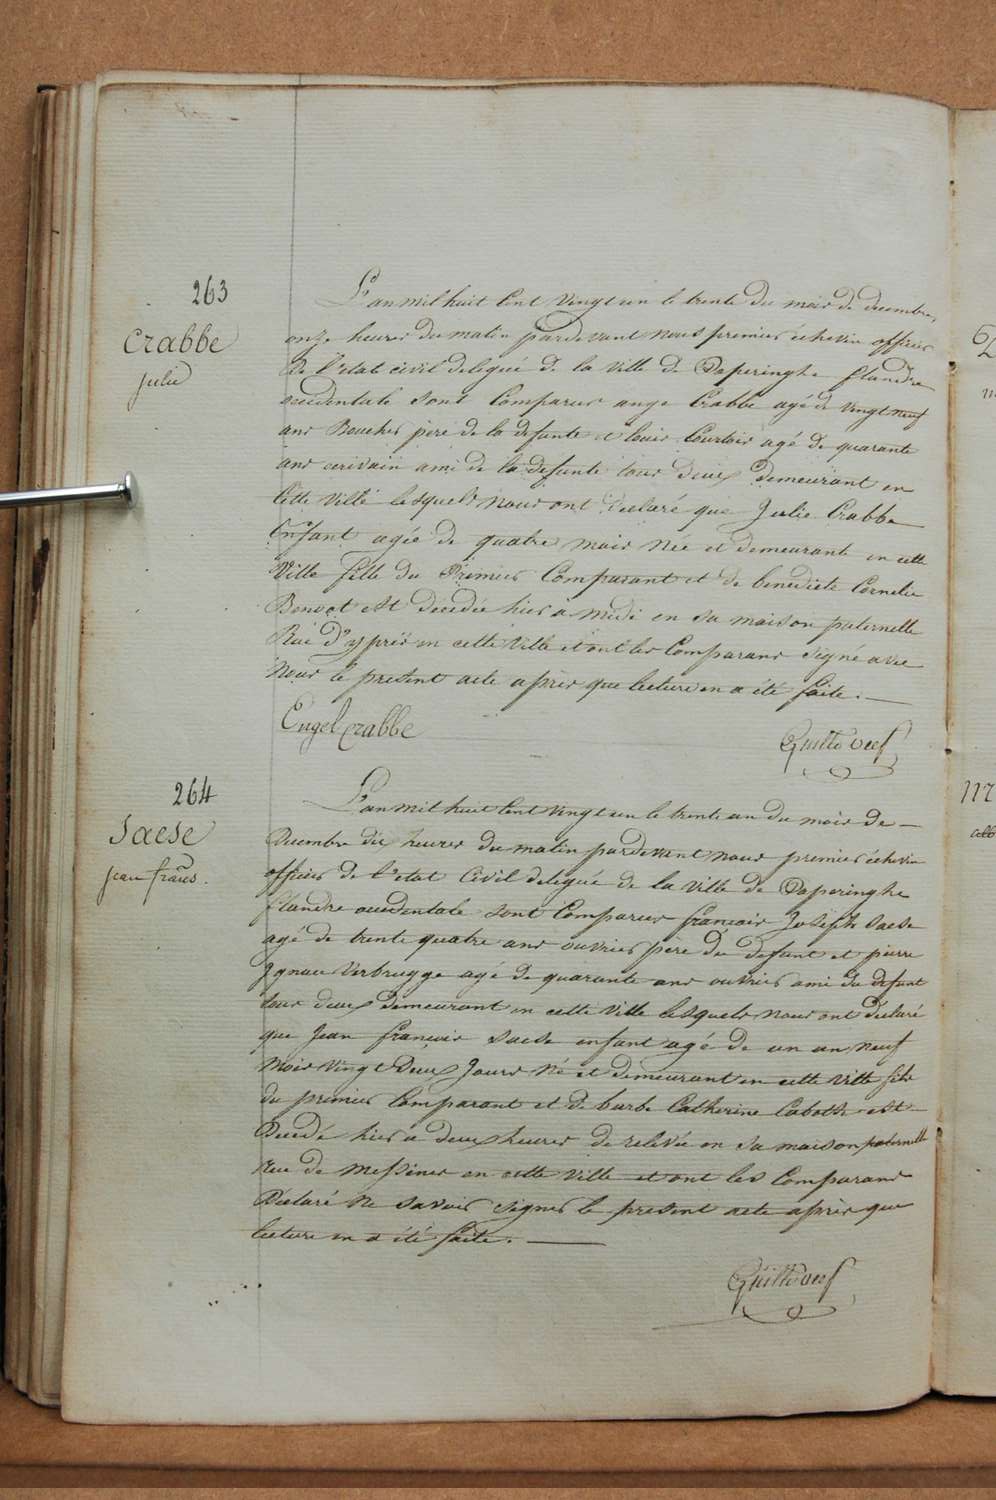 263
Crabbe
julie
L'an mil huit Cent Vingt un le trente du mois de decembre,
onze heures du matin pardevant nous premier échevin officier
de l'etat civil delegué de la Ville de Poperinghe flandre
occidentale sont Comparus ange Crabbe agé de vingt neuf
ans Boucher pere de la defunte et louis Courtois agé de quarante
ans ecrivain ami de la defunte tous deux demeurant en
Cette Ville lesquels nous ont declaré que Julie Crabbe
Enfant agée de quatre mois Née et demeurante en cette
Ville fille du Premier Comparant et de benedicte Cornelie
est décedée hier à midi en sa maison paternelle
Rue D'ypres en cette Ville et ont les Comparans signé avec
Nous le present acte après que lecture en a été faite.
Engel crabbe
264
Saese
jean francs.
L'an mil huit Cent Vingt un le trente un du mois de
Decembre dix heures du matin pardevant nous premier échevin
officier de l'etat Civil deleguée de la Ville de Poperinghe
flandre occidentale sont Comparus francois Joseph Saese
agé de trente quatre ans ouvrier pere du defunt et pierre
Ignace Verbrugge agé de quarante ans ouvrier ami du defunt
tous deux demeurant en cette Ville lesquels nous ont déclaré
que Jean françois Saese enfant agé de un an neuf
Mois Vingt Deux Jours Né et demeurant en cette Ville fils
du premier Comparant et de barbe Catherine Caboth est
Decedé hier a deux heures de relevée en sa maison paternelle
rue de Messines en cette Ville et ont les Comparans
Déclaré Ne savoir signer le present acte après que
lecture en a été faite.
117